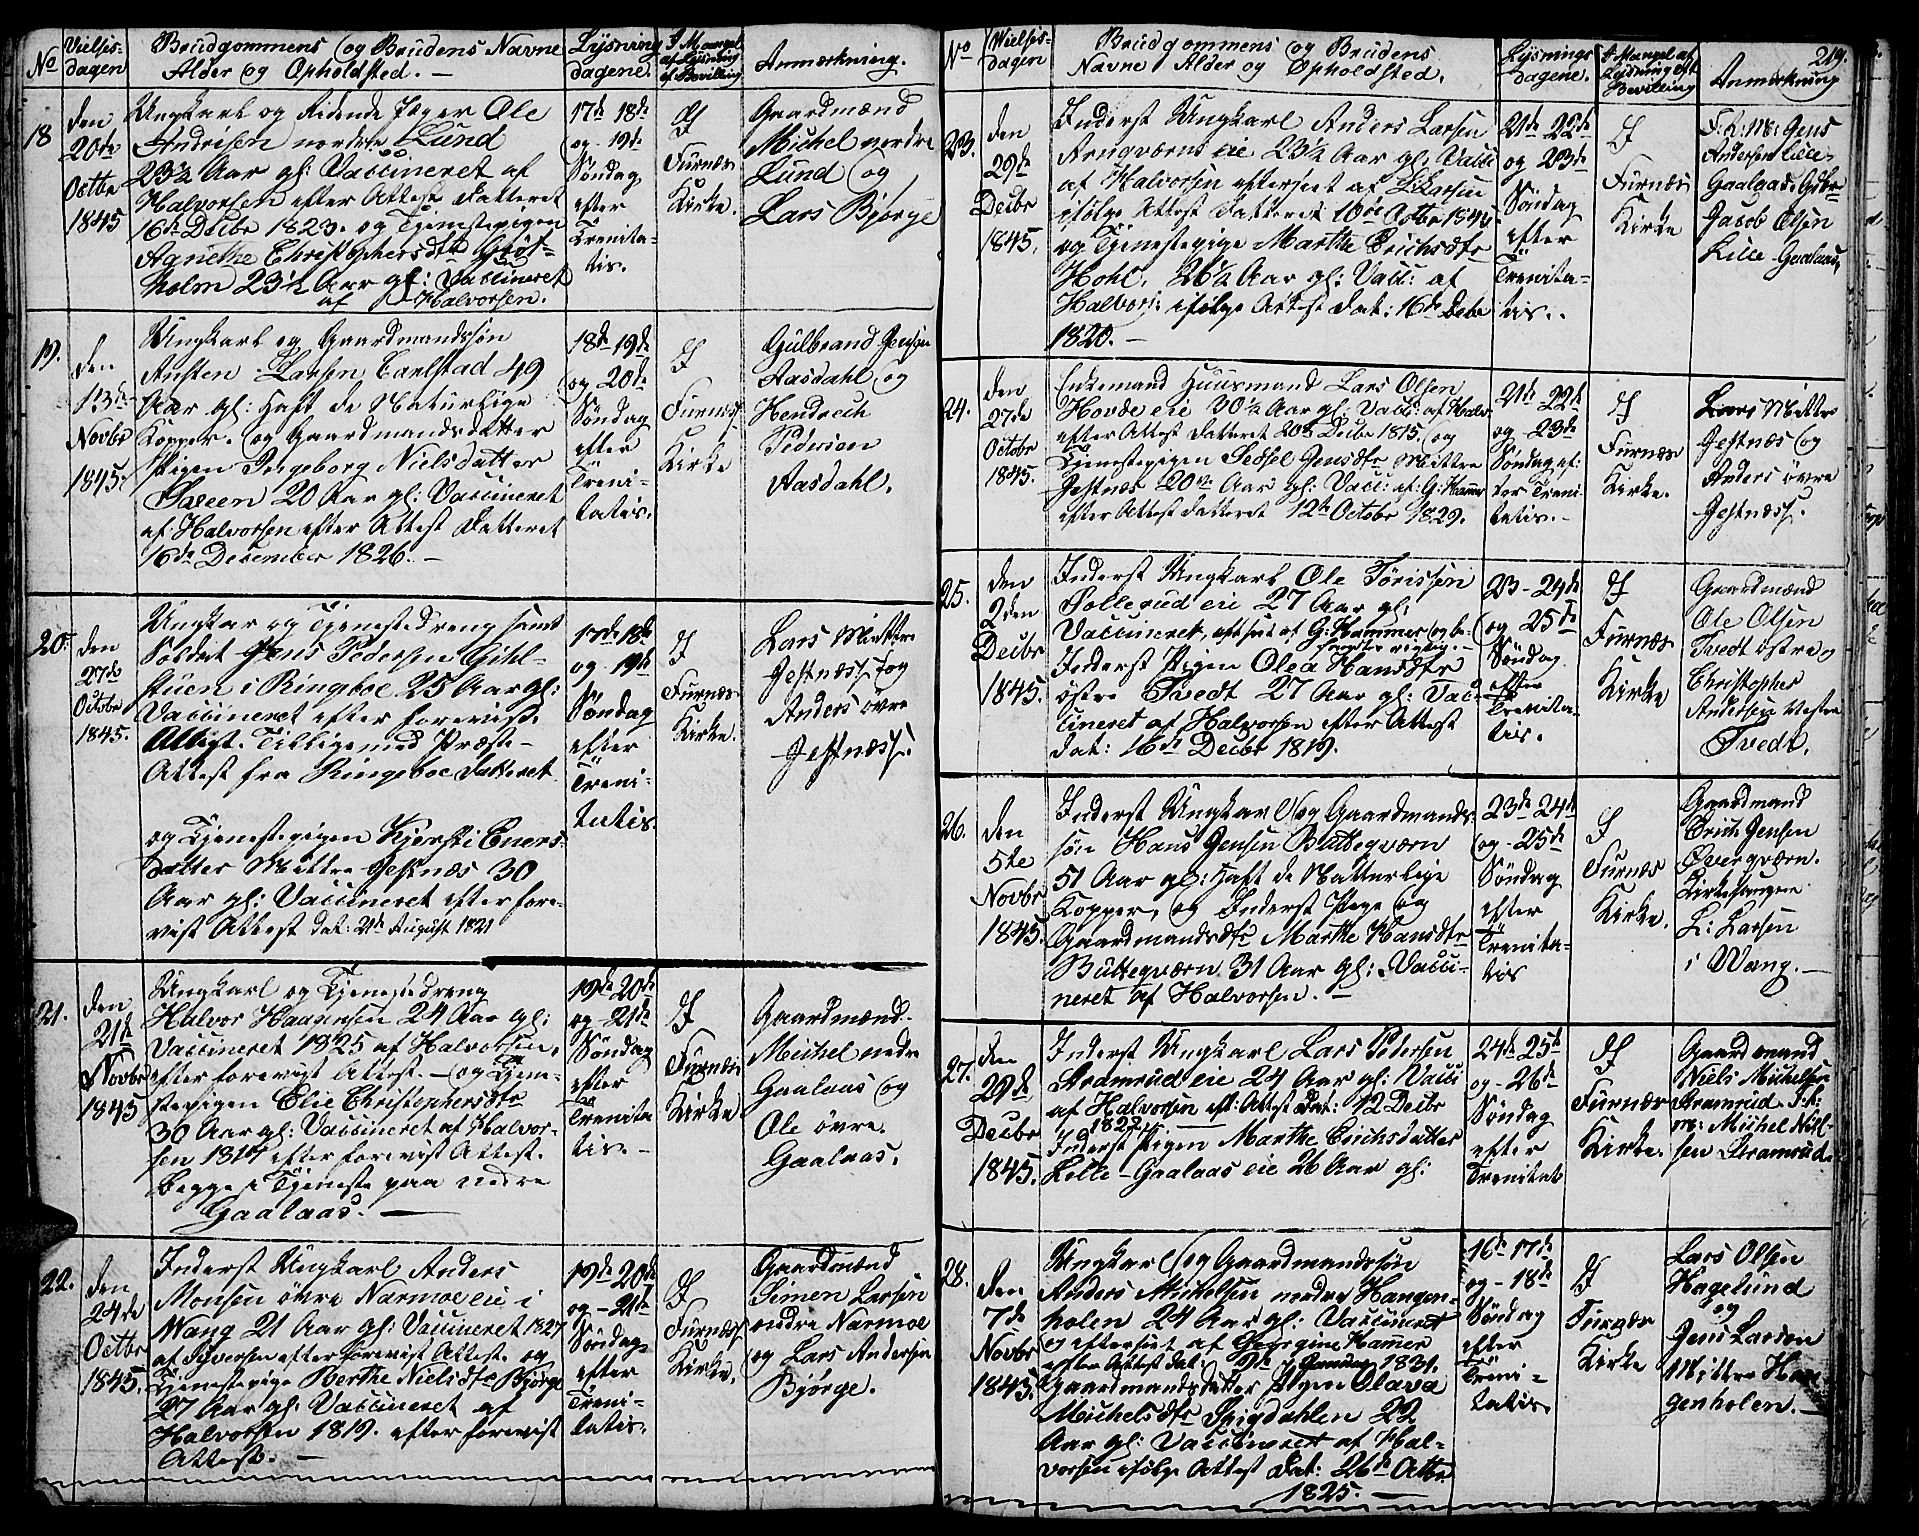 No
Vielses-
dagen
Brudgommens og Brudens Navne
Alder og Opholdsted. —
Lysnings
dagene.
I Mangel
af Lysning
af Bevilling
Anmærkning.
18
den
20de
Octbr
1845
Ungkarl og Ridende Jæger Ole
Andrisen nordre Lund
23½ Aar gl: Vaccineret af
Halvorsen efter Attest datteret
16de Decbr 1823. og Tjenestepigen
Agnethe Christophersdtr
holm 23½ Aar gl: Vaccineret
af Halvorsen.
17de 18de
og 19de
Søndag
efter
Trenita-
tis.
I
Furnæs
Kirke.
Gaardmænd
Michel nordre
Lund og
Lars Bjørge
19.
den
13de
Novbr
1845.
Ungkarl og Gaardmandssøn
Austen Larsen Carlstad 49
Aar gl: Haft de Naturlige
Kopper. og Gaardmandsdatter
Pigen Ingeborg Nielsdatter
20 Aar gl: Vaccineret
af Halvorsen efter Attest datteret
16de December 1826. —
18de 19de
og 20de
Søndag
efter
Treni-
tatis.
I
Furnæs
Kirke
Gulbrand Jensen
Aasdahl og
Hendrech
Pedersen
Aasdahl.
20.
den
27de
Octobr
1845.
Ungkar og Tjenestedreng samt
Soldat Jens Pedersen Gihl-
stuen i Ringeboe 25 Aar gl:
Vaccineret efter foreviste
Attest. Tilligemed Præste-
Attest fra Ringeboe datteret
og Tjenestepigen Kjersti Eners-
datter Mittre Jestnæs 30
Aar gl: Vaccineret efter fore-
vist Attest dat: 21de August 1821
17de 18de
og 19de
Søndag
efter
Treni-
tatis.
I
Furnæs
Kirke.
Lars Mittre
Jestnæss. og
Anders øvre
Jestnæss.
21.
den
21de
Novbr
1845
Ungkarl og Tjenestedreng
Halvor Haagensen 24 Aar gl:
Vaccineret 1825 af Halvorsen,
efter forevist Attest. — og Tjene-
stepigen Elie Christophersdtr
30 Aar gl: Vaccineret af Halvor-
sen 1814 efter forevist Attest.
begge i Tjeneste paa nedre
Gaalaas. —
19de 20de
og 21de
Søndag
efter
Trenita
tis. -
I
Furnæs
Kirke
Gaardmænd.
Michel nedre
Gaalaas og
Ole øvre
Gaalaas.
22.
den
24de
Octbr
1845.
Inderst Ungkarl Anders
Monsen øvre Narmoe eie i
Wang 21 Aar gl: Vaccineret 1827
af Syversen efter forevist Attest. og
Tjenestepige Berthe Nielsdtr Bjørge
27 Aar gl: Vaccineret af
Halvorsen 1819. efter forevist
Attest. —
19de 20de
og - 21de
Søndag
efter
Treni-
tatis.
I
Furnæss.
Kirke.
Gaardmænd
Simen Larsen
nedre Narmoe
og Lars Andersen
Bjørge.
219.
No
Wielses-
dagen
Brudgommens og Brudens
Navne Alder og Opholdsted.
Lysnings
dagene.
I Mangel af
Lysning af
Bevilling
Anmærkning
23.
den
29de
Decbr
1845.
Inderst Ungkarl Anders Larsen
Arnqværns eie 23½ Aar gl: Vacci
af Halvorsen efterseet af L: Larsen
ifølge Attest datteret Octbr 1845
og Tjenestepige Marthe Erichsdtr
Hohl, 26½ Aar gl: Vacci: af
Halvors: ifølge Attest dat: 16de Decbr
1820. —
21de 22de
og 23de
Søndag
efter
Trenita-
tis. .
I
Furnæs
Kirke
Jens
Andersen Lille
Gaalaas
Jacob Olsen
Lille Gaalaas
24.
den
27de
Octobr
1845.
Enkemand Huusmand Lars Olsen
Hovde eie 30½ Aar gl: Vacci: af Halv
efter Attest datteret 20de Decbr 1815. og
Tjenestepigen Sedsel Jensdtr Mittre
Jestnæs 20 Aar gl: Vacci: af: G: Hamer
efter Attest datteret 12te Octobr 1829. -
21de 22de
og - 23de
Søndag ef:
ter Treni-
tatis. -
I
Furnæs
Kirke.
Lars Mittre
Jestnæs og
Anders øvre
Jestnæss.
25.
den
2den
Decbr
1845.
Inderst Ungkarl Ole Tørissen
Sollerud eie 27 Aar gl:
Vaccineret, efterseet af G: Hammer og be-
fundet rigtig. —
Inderst Pigen Olea Hansdtr
østre Tvedt 27 Aar gl: Vac-
cineret af Halvorsen efter Attest
dat: 16de Decbr 1819.
23 - 24de
og 25de
Søndag
efter
Trenita-
tis.
I
Furnæs
Kirke
Gaardmænd
Ole Olsen
Tvedt østre og
Christopher
Andersen Vestre
Tvedt.
26.
den
5te
Novbr
1845.
Inderst Ungkar og Gaardmands
søn Hans Jensen Buttegværn
51 Aar gl: Haft de Natterlige
Kopper, og Inderst Pige og
Gaardmandsdtr Marthe Hansdtr
Buttegværn 31 Aar gl: Vacci-
neret af Halvorsen. —
23de 24de
og - 25de
Søndag
efter
Trenita-
tis
I
Furnæs
Kirke.
Gaardmand
Erich Jensen
Øverqværn.
Kirkesanger
L: Larsen
i Wang. —
27.
den
29de
Decbr
1845.
Inderst Ungkarl Lars Pedersen
Stramrud eie 24 Aar gl: Vacci
af Halvorsen eft: Attest dat: 12 Decbr
1822. —
Inderst Pigen Marthe Erichsdatter
Lille - Gaalaas eie 26 Aar gl:
24de 25de
og - 26de
Søndag
efter
Trenitat
I
Furnæs
Kirke.
Gaardmand
Niels Michelsen
Stramrud
Michel Niel-
sen Stramrud.
28.
den
7de
Novbr
1845.
Ungkarl og Gaardmandssøn
Anders Michelsen nordre Hangen-
holen 24 Aar gl: Vaccineret
og efterseet af Georgine Hamer
efter Attest dat: 1831.
Gaardmandsdatter Pigen Olava
Michelsdtr Spigdahlen 22
Aar gl: Vaccineret af Hal-
vorsen ifølge Attest dat: 26de Octbr
1825. —
16de 17de
og - 18de
Søndag
efter
Treni-
tatis.
I
Furnæs
Kirke
Lars Olsen
Hagelund
og
Jens Larsen
Mittre Han
genholen. —